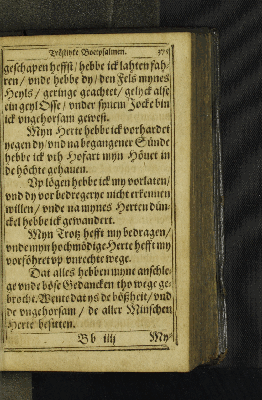 Tröstlyke Boetpsalmen. 375
geschapen hefft / hebbe ick lahten fah-
ren / vnde hebbe dy / den Fels mynes
Heyls / geringe geachtet / gelyck alse
ein geyl Osse / vnder synem Jocke bin
ick vngehorsam gewest.
Myn Herte hebbe ick vorhardet
yegen dy / vnd na begangener Sünde
hebbe ick vth Hofart myn Höuet in
de höchte gehauen.
Vp lögen hebbe ick my vorlaten /
vnd dy vor bedregerye nicht erkennen
willen / vnde na mynes Herten dün-
ckel hebbe ick gewandert.
Myn Trotz hefft my bedragen /
vnde myn hochmödige Herte hefft my
vorföhret vp vnrechte wege.
Dat alles hebben myne anschle-
ge vnde böse Gedancken tho wege ge-
brocht. Wente dat ys de bößheit / vnd
de vngehorsam / de aller Minschen
Herte besitten.
Bb iiij My-